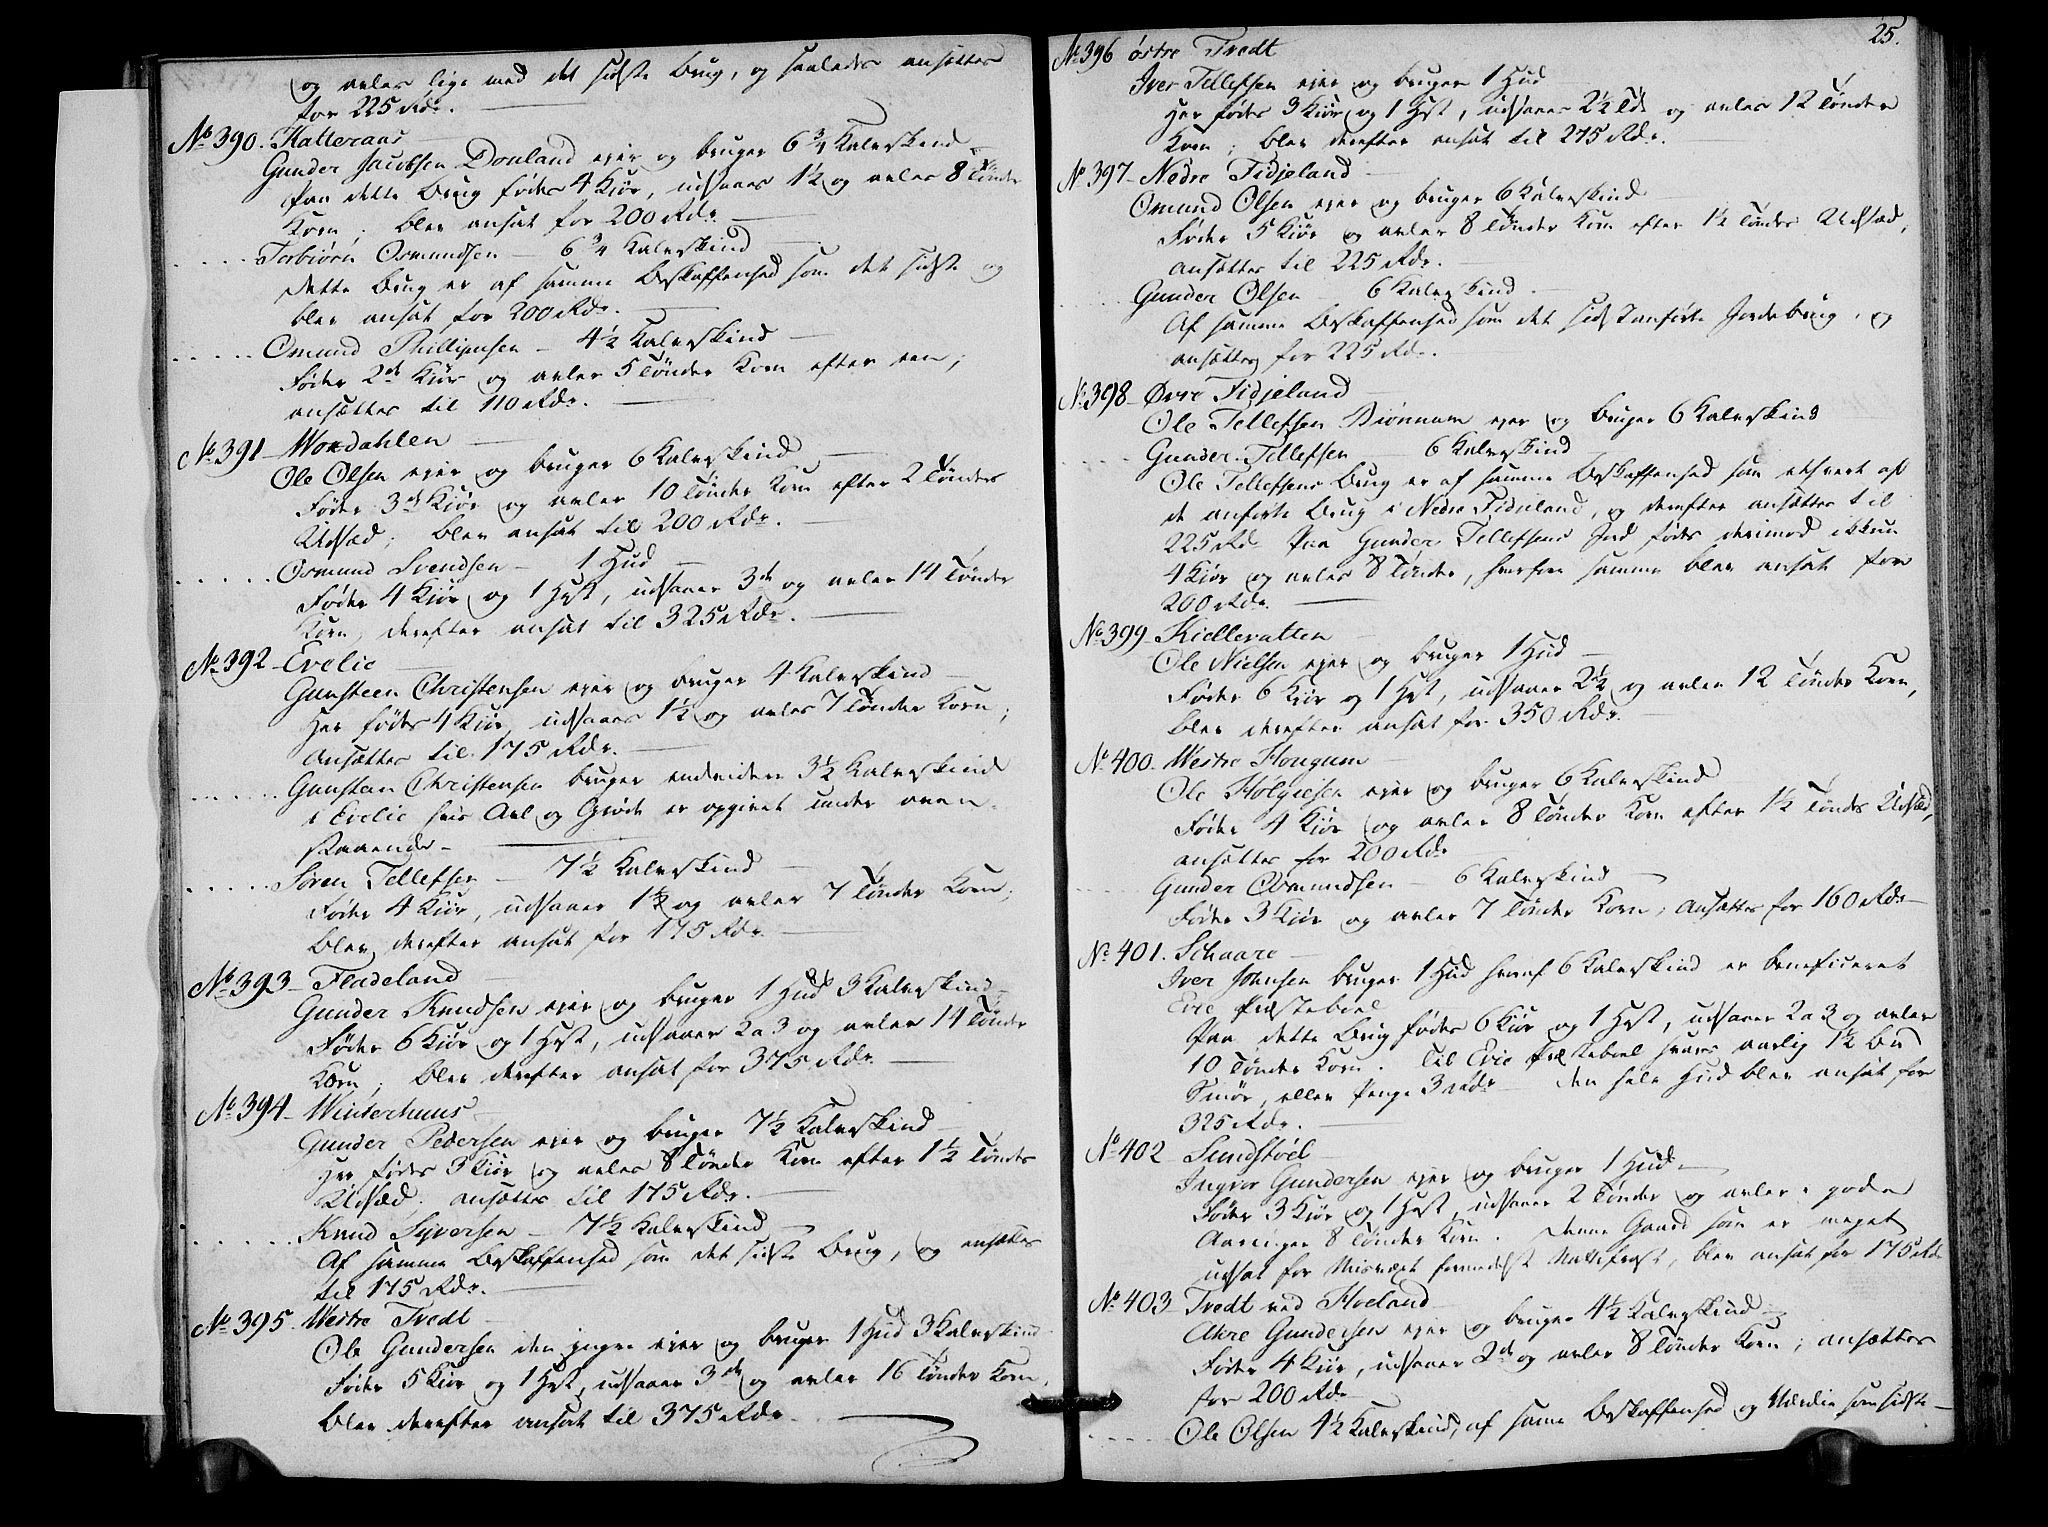 og avles lige med det sidste Brug, og saaledes ansættes
for 225 Rdr.
No 390. Katteraas
Gunder Jacobsen Douland ejer og bruger 6 3/4 Kalvskind
Paa dette Brug fødes 4 Kiør, udsaaes 1½ og avles 8 Tønder
Korn; blev ansat for 200 Rdr.
Torbiørn Osmundsen – 6 3/4 Kalvskind
Dette Brug er af samme Beskaffenhed som det sidste og
blev ansat for 200 Rdr.
Omund Phillipusen – 4½ Kalvskind
Føder 2de Kiør og avler 5 Tønder Korn efter een;
ansættes til 110 Rdr.
No 391 – Mordahlen
Ole Olsen ejer og bruger 6 Kalvskind
Føder 3de Kiør og avler 10 Tønder Korn efter 2 Tønders
Udsæd; blev ansat til 200 Rdr.
Osmund Svendsen – 1 Hud
Føder 4 Kiør og 1 Hest, udsaaer 3de og avler 14 Tønder
Korn, derefter ansat til 325 Rdr.
No 392 – Evelie
Gunsteen Christensen ejer og bruger 4 Kalvskind
Her fødes 4 Kiør, udsaaes 1½ og avles 7 Tønder Korn;
Ansættes til 175 Rdr.
Gunstan Christensen bruger endvidere 3½ Kalvskind
i Evelie hvis Avl og Grøde er opgivet under oven-
staaende –
Søren Tellefsen – 7½ Kalvskind
Føder 4 Kiør, udsaaer 1½ og avler 7 Tønder Korn;
blev derefter ansat for 175 Rdr.
No 393 – Fladeland
Gunder Knudsen ejer og bruger 1 Hud 3 Kalvskind
Føder 6 Kiør og 1 Hest, udsaaer 2 a 3 og avler 14 Tønder
Korn; blev derefter ansat for 375 Rdr.
No 394 – Winterhuus
Gunder Pedersen ejer og bruger 7½ Kalvskind
Her fødes 3 Kiør og avles 8 Tønder Korn efter 1½ Tønders
Udsæd; ansættes til 175 Rdr.
Knud Syversen – 7½ Kalvskind
Af samme Beskaffenhed som det sidste Brug, og ansættes
til 175 Rdr.
No 395. Westre Tvedt
Ole Gundersen den yngre ejer og bruger 1 Hud 3 Kalvskind
Føder 5 Kiør og 1 Hest, udsaaer 3de og avler 16 Tønder Korn,
blev derefter ansat til 375 Rdr.
25.
No 396 østre Tvedt
Iver Tellefsen ejer og bruger 1 Hud
Her fødes 3 Kiør og 1 Hest, udsaaes 2½ Td. og avles 12 Tønder
Korn; blev derefter ansat til 275 Rdr.
No 397 – Nedre Fidjeland
Omund Olsen ejer og bruger 6 Kalvskind
Føder 5 Kiør og avler 8 Tønder Korn efter 1½ Tønders Udsæd,
ansættes til 225 Rdr.
Gunder Olsen – 6 Kalvskind
Af samme Beskaffenhed som det sidst anførte Jordebrug, og
ansættes for 225 Rdr.
No 398 – Øvre Fidjeland
Ole Tellefsen Biønnum ejer og bruger 6 Kalvskind
Gunder Tellefsen – 6 Kalvskind
Ole Tellefsens Brug er af samme Beskaffenhed som ethvert af
de anførte Brug i Nedre Fidjeland, og derefter ansættes til
225 Rd. Paa Gunder Tellefsens Jord fødes derimod ikkun
4 Kiør og avles 8 Tønder, hvorfor samme blev ansat for
200 Rdr.
No 399 – Kielleratten
Ole Nielsen ejer og bruger 1 Hud
Føder 6 Kiør og 1 Hest, udsaaer 2½ og avler 12 Tønder Korn,
blev derefter ansat for 350 Rdr.
No 400. Westre Hougum
Ole Holgiesen ejer og bruger 6 Kalvskind
Føder 4 Kiør og avler 8 Tønder Korn efter 1½ Tønders Udsæd,
ansættes for 200 Rdr
Gunder Osmundsen – 6 Kalvskind
Føder 3 Kiør og avler 7 Tønder Korn; Ansættes for 160 Rdr –
No 401. Schaare
Iver Johnsen bruger 1 Hud hvoraf 6 Kalvskind er beneficeret
Evie Præsteboel
Paa dette Brug fødes 6 Kiør og 1 Hest, udsaaes 2 a 3 og avles
10 Tønder Korn. Til Evie Præsteboel svares aarlig 1½ Bd
Smør, eller Penge 3 Rdr – Den hele Hud blev ansat for
325 Rdr.
No 402 Sundstøel
Ingvor Gundersen ejer og bruger 1 Hud –
Føder 3 Kiør og 1 Hest, udsaaer 2 Tønder og avler i gode
Aaringer 8 Tønder Korn. Denne Gaard som er meget
udsat for Misvæxt formedelst Nattefrost, blev ansat for 175 Rdr
No 403 Tvedt ved Hoeland
Akre Gundersen ejer og bruger 4½ Kalvskind
Føder 4 Kiør, udsaaer 2de og avler 8 Tønder Korn; ansættes
for 200 Rdr
Ole Olsen 4½ Kalvskind, af samme Beskaffenhed og Værdie som sidste –